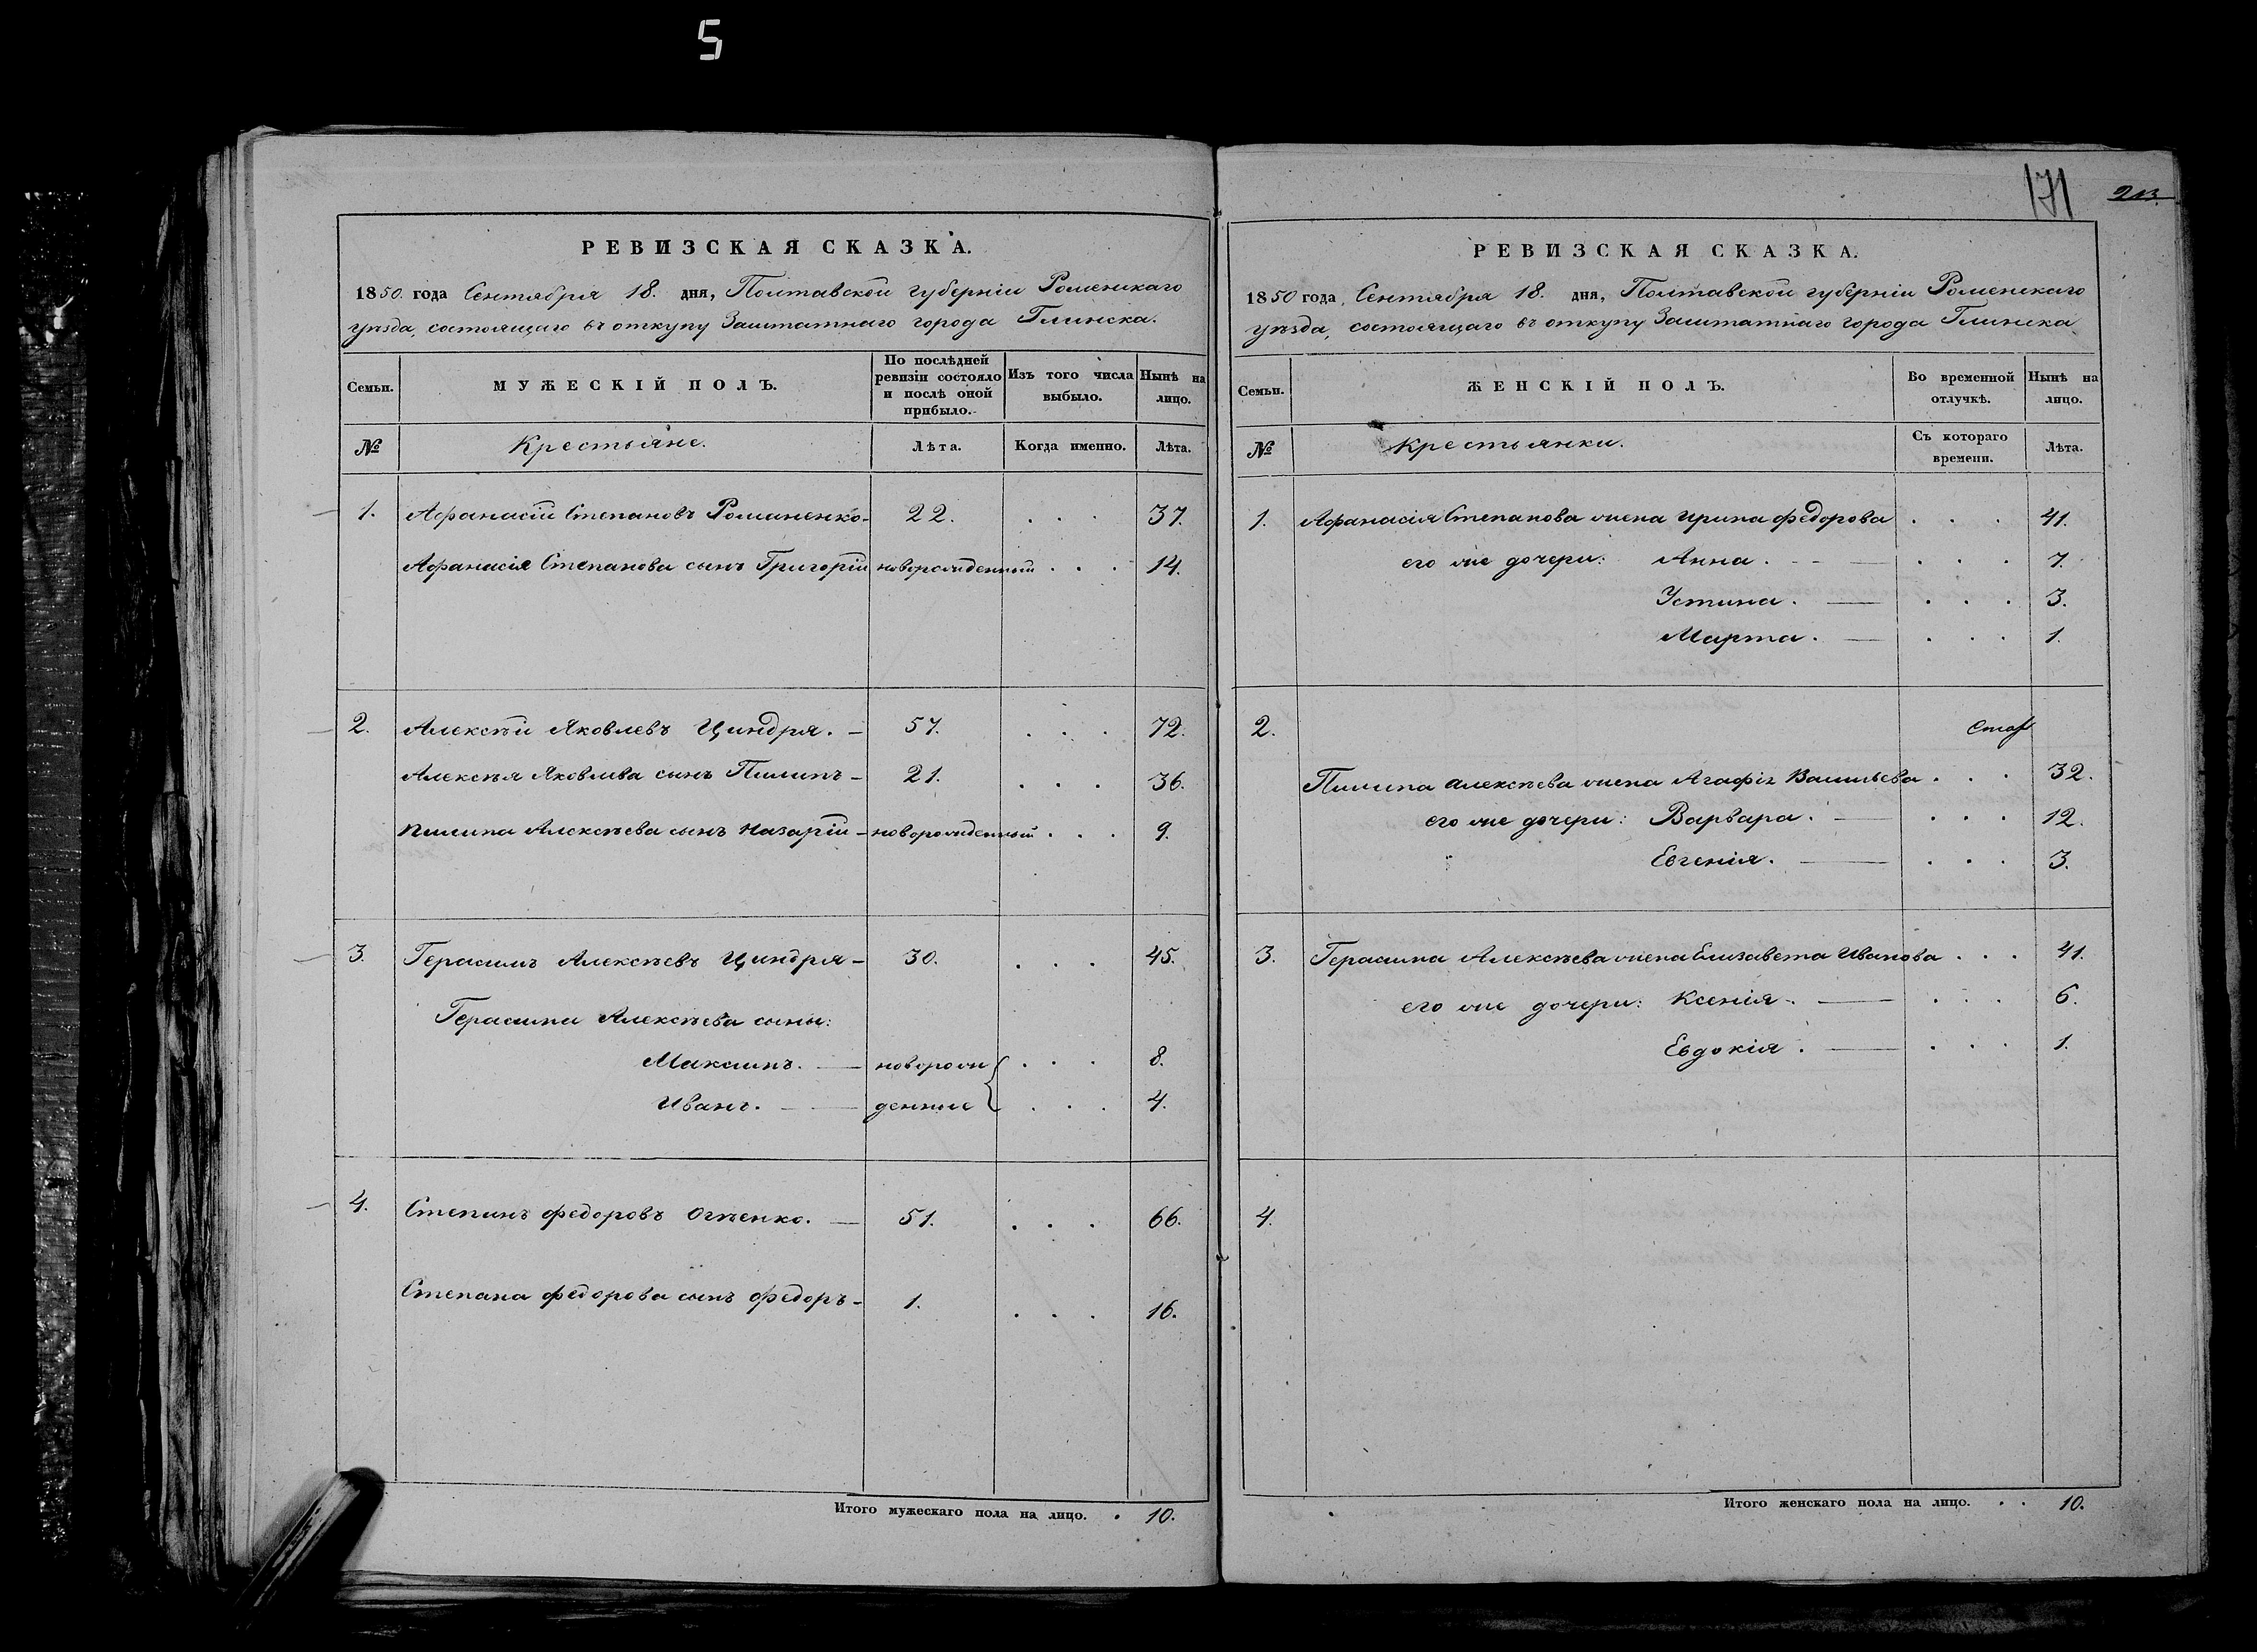 5
РЕВИЗСКАЯ СКАЗКА.
1850. года Сентября 18. дня, Полтавской губерніи Роменскаго
уѣзда, состоящаго въ откупу Заштатнаго города Глинска.
Семьи.
МУЖЕСКІЙ ПОЛЪ.
По послѣдней
ревизіи состояло
и послѣ оной
прибыло.
Изъ того числа
выбыло.
Нынѣ на
лицо.
№
Крестьяне.
Лѣта.
Когда именно.
Лѣта.
1. Афанасій Степановъ Романенко- 22. . . . 37.
Афанасія Степанова сынъ Григорій новорожденный . . . 14.
2. Алексѣй Яковлевъ Циндря. - 57. . . . 72.
Алексѣя Яковлева сынъ Пилипъ - 21. . . . 36.
Пилипа Алексѣева сынъ Назарій - новорожденный . . . 9.
3. Герасимъ Алексѣевъ Циндря - 30. . . . 45.
Герасима Алексѣева сыны:
Максимъ. — новорож . . . 8.
Иванъ. — денные . . . 4.
4. Степанъ Федоровъ Огѣенко. — 51. . . . 66.
Степана Федорова сынъ Федоръ - 1. . . . 16.
Итого мужескаго пола на лицо. . 10.
171 213.
РЕВИЗСКАЯ СКАЗКА.
1850 года, Сентября 18. дня, Полтавской губерніи Роменскаго
уѣзда, состоящаго въ откупу Заштатнаго города Глинска
Семьи.
ЖЕНСКІЙ ПОЛЪ.
Во временной
отлучкѣ.
Нынѣ на
лицо.
№
Крестьянки.
Съ котораго
времени.
Лѣта.
1. Афанасія Степанова жена Ирина Федорова . . . 41.
его же дочери: Анна. — . . . 7.
Устина. — . . . 3.
Марта. — . . . 1.
2.
Пилипа Алексѣева жена Агафія Васильева . . . 32.
его же дочери: Варвара. — . . . 12.
Евгенія. — . . . 3.
3. Герасима Алексѣева жена Елизавета Иванова . . . 41.
его же дочери: Ксенія. — . . . 6.
Евдокія. — . . . 1.
4.
Итого женскаго пола на лицо. . . 10.